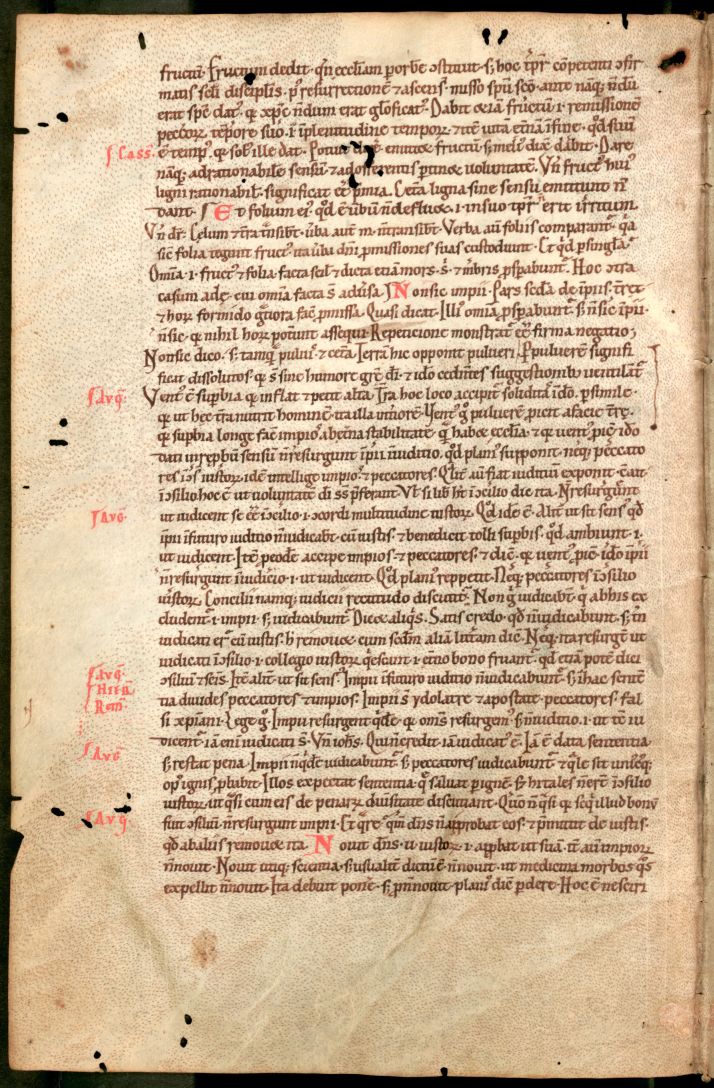 fructū. Fructum dedit. qn̄ ecclīam ꝑ orbē ꝯstituit. s; hoc tp̄r cōpetenti ꝯfir
matis scil. discipłis. ꝑ resurrectionē ⁊ ascens. misso spū scō. ante nāq; nōdū
erat spc̄ dat᷒. q xp̄c nōdum erat glorificat᷒. Dabit etiā fructū .i. remissionē
pecc̄oꝝ tēpore suo .i. in plenitudine tempoꝝ. ⁊ itē uitā etnā in fine. qd̄ suū
ſ Cass. ē temp᷒. q sol᷒ ille dat. Potuit dicē emittet fructū. s; meli᷒ dic̄ dabit. Dare
nāq; ad rationabilē sensū ⁊ ad offerentis ꝑtinet uoluntatē. Vn̄ fruct᷒ hui᷒
ligni rationabil. significat eē p̄mia. Cet̄a ligna sine sensu emittunt n̄
dant. Et folium ei᷒ qd̄ ē uerbū n̄ defluet .i. in suo tp̄r erit irritum
Vn̄ dr̄. Celum ⁊ tr̄a trānsibt. uerba aut m̄. n̄ transibt. Verba au foliis comparant. q̄a
sic̄ folia tegunt fruct᷒. ita uerba dn̄i ꝓmissiones suas custodiunt. Et qd̄ ꝑ singła
Omīa .i. fruct᷒ ⁊ folia facta scil. ⁊ dicta etiā mors. s. ⁊ mēbris ꝓsꝑabunt. Hoc ꝯtra
casum adę. cui omīa facta s̄ aduersa. Non sic impii. Pars sc̄da de ip̄iis.
⁊ hoꝝ formido. grauiora facē p̄missa. Quasi dicat. Illi᷒ omīa ꝓsꝑabunt. s; n̄ sic ip̄ii.
n̄ sic. q nihil hoꝝ potunt assequi. Repeticione monstrat eē firma negatio;
Non sic dico. s; tamq̄ puluis ⁊ cet̄a. Terrā hic opponit pulueri. Ꝑ puluerē signifi
ficat dissolutos. q s̄ sine humore grē dī. ⁊ ido cedentes suggestionibꝰ uentilant
ſ Aug. Vent᷒ ē suꝑbia q inflat ⁊ petit alta. Trā hoc loco accipit soliditā in do. ꝑ simile.
q ut hec tr̄a nutrit hominē. ita illa int̄iorē. Vent᷒ g puluerē ꝓicit a facie tr̄e.
q suꝑbia longe facē impios ab etna stabilitate q̄ habet ecclīa. ⁊ q uent᷒ ꝓic̄. ido
dati in repbū sensū n̄ resurgunt ip̄ii in iuditio. qd̄ plani᷒ supponit. neq; peccato
res in ꝯs. iustoꝝ. idē intelligit impios ⁊ peccatores. Qłr̄ au fiat iuditiū exponit. Erit
in ꝯsilio hoc ē ut uoluntate dī s̄s p̄ferant. Vł si lib; hr̄ in ꝯcilio dic̄ ita. N̄ resurgunt
ſ Aug. ut iudicent se eē in ꝯcilio .i. ꝯcordi multitudine iustoꝝ. Qd̄ ide ē. Alit̄ ut sit sens᷒ qd̄
ip̄ii in futuro iuditio n̄ iudicabt. cū iustis. ⁊ benedicit tolli suꝑbis. qd̄ ambiunt .i.
ut iudicent. Itē peode accipe impios. ⁊ peccatores. ⁊ dic̄. q uent᷒ ꝓic̄. ido ip̄ii
n̄ resurgunt in iudicio .i. ut iudicent. Qd̄ plani᷒ reppetit. Neq; peccatores in ꝯsilio
iustoꝝ. Concilii namq; iudicii rectitudo discutit. Non g iudicabt. q ab his ex
cludent .i. impii. s; iudicabunt. Dicet aliqs. Satis credo. qd̄ n̄ iudicabunt. s; tn̄
iudicati er̄ cū iustis. h remouet eum secdm aliā litt̄am dic̄. Neq; ita resurget ut
iudicati in ꝯsilio .i. collegio iustoꝝ q̄escunt. ⁊ etno bono fruant. qd̄ etiā potē dici
ſ Aug. ꝯsiliū ⁊ seīs. Itē alit̄. ut sit sens᷒. Impii in futuro iuditio n̄ iudicabunt. s; in hac sentē
ſ Hieron. tia diuides peccatores ⁊ impios. Impii s̄ ydolatre ⁊ apostate. peccatores. fal
Rem. si xp̄iani. Lege g. Impii resurgent qdē. q om̄s resurgem᷒. s; n̄ in iuditio .i. ut tē iu
ſ Aug. dicent. iā eni iudicati s̄. Vn̄ ioh̄s. Qui n̄ credit. iā iudicat᷒ ē. Iā ē data sententia.
s; restat pena. Impii n̄ qdē iudicabunt. s; peccatores iudicabunt. ⁊ qle sit uniuscq;
op᷒ ignis ꝓbabit. Illos expectat sententia. q̄ saluat ꝑ ignē. s; hi tales n̄ erē in ꝯsilio
ſ Aug. iustoꝝ. ut q̄si cum eis de penaꝝ diuersitate discutiant. Quō n̄ q̄si q seq̄ illud bonū
siue ꝯsiliū. n̄ resurgunt impii. Et qre qm̄ dn̄s n̄ approbat eos. ⁊ p̄mittit de iustis.
qd̄ ab aliis remouet ita. Nouit dn̄s. u. iustoꝝ .i. apꝑbat ut suā. it̄ au impioꝝ
n̄ nouit. Nouit utiq; scientia. s; usualit̄ dictū ē. n̄ nouit. ut medicina morbos q̄s
expellit n̄ nouit. Ita debuit ponē. s; ꝓ n̄ nouit. plani᷒ dic̄ ꝑdere. Hoc ē nesciri